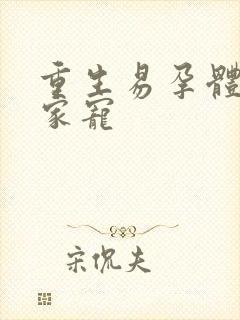 重生易孕體
家寵
宋侃夫